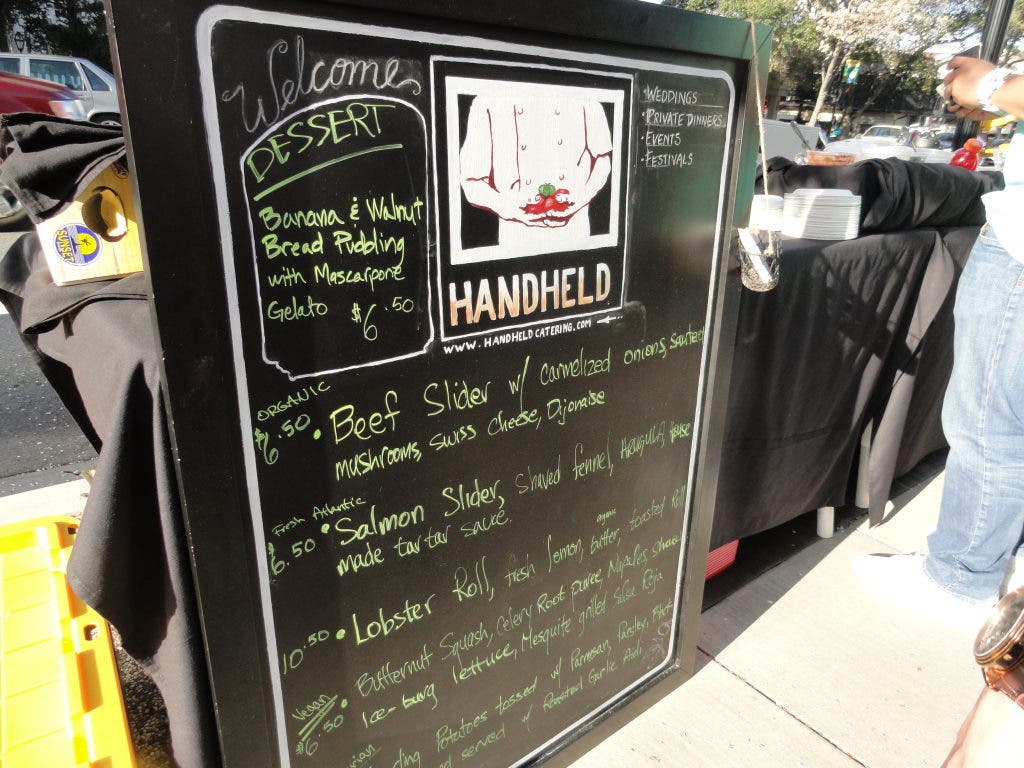 Welcome
DESSERT
Banana & Walnut
Bread Pudding
with Mascarpone
Gelato $6.50
HANDHELD
WWW.HANDHELDCATERING.COM
·WEDDINGS
·PRIVATE DINNERS
·EVENTS
·FESTIVALS
SUNSET
ORGANIC
$6.50 • Beef Slider w/ carmelized onions, sauteed
mushrooms, swiss cheese, Dijonaise
Fresh Atlantic
$6.50 • Salmon Slider, shaved fennel, Arugula, House
made tartar sauce.
organic
10.50 • Lobster Roll, fresh lemon, butter, toasted Roll
Vegan
$6.50 • Butternut Squash, Celery Root puree, Nopales, Shaved
Ice-burg lettuce, Mesquite grilled Salsa Roja
Potatoes tossed w/ Parmesan, Parsley,
served w/ Roasted Garlic Aioli